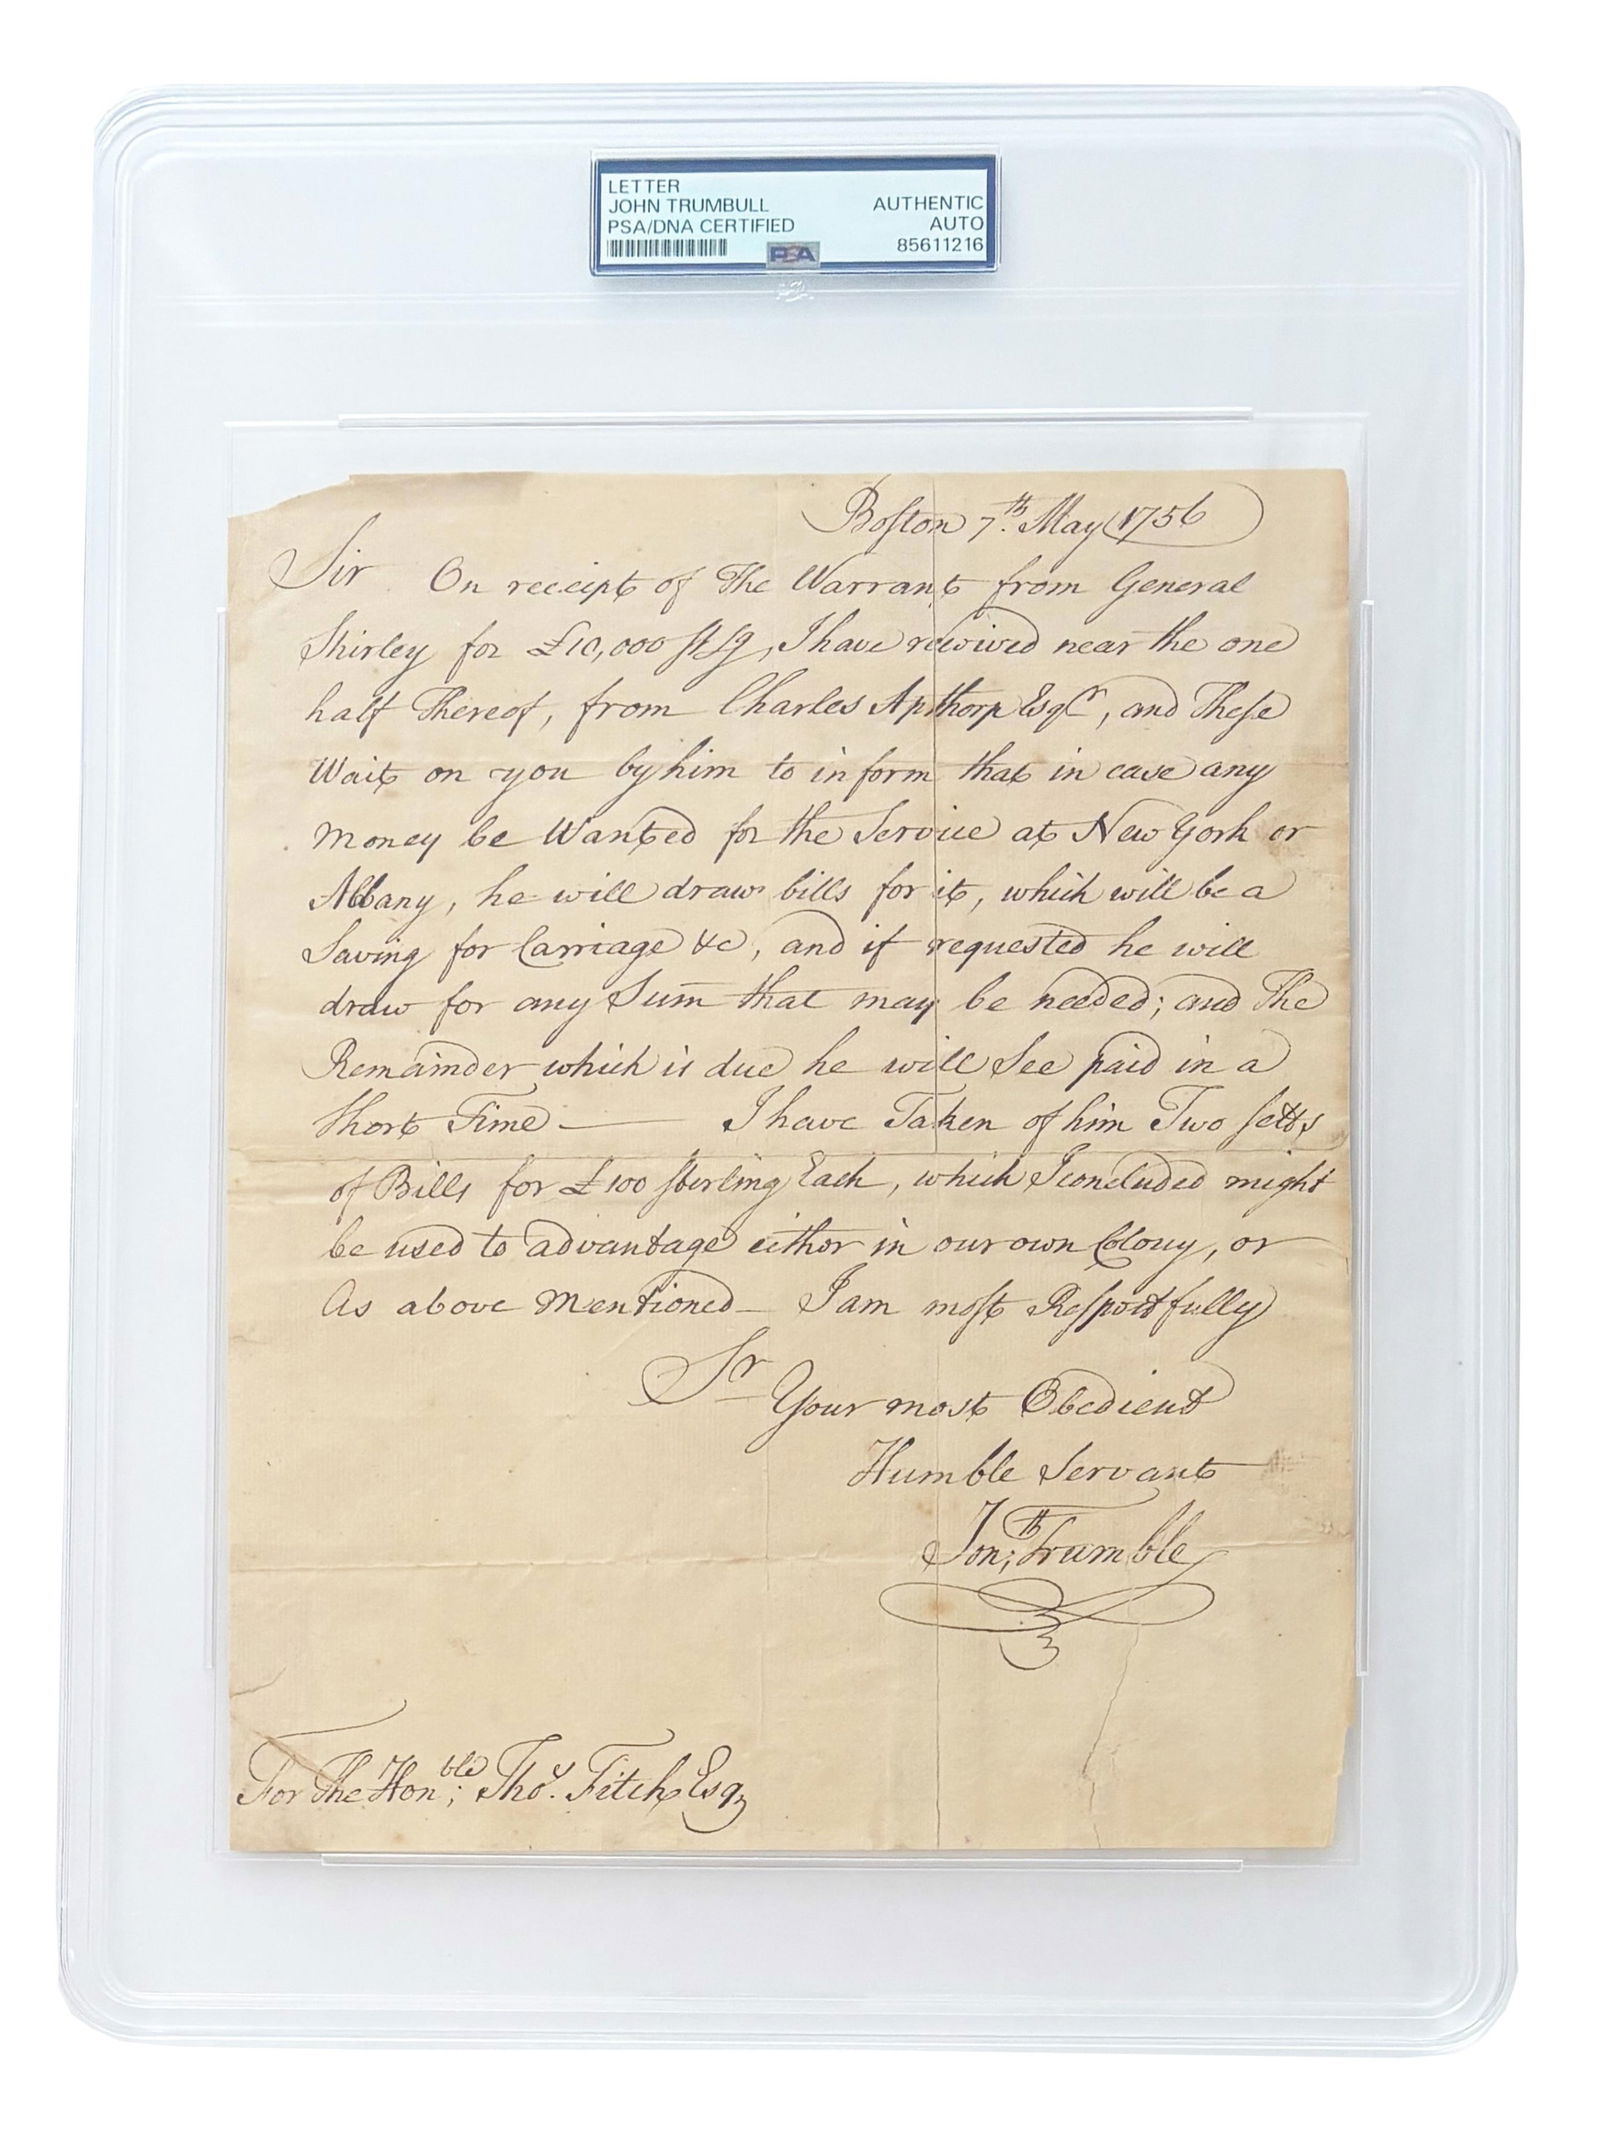 LETTER
JOHN TRUMBULL
PSA/DNA CERTIFIED
AUTHENTIC
AUTO
85611216
PSA
Boston 7th. May 1756
Sir On receipt of The Warrant from General
Shirley for £10,000 Stg, I have received near the one
half Thereof, from Charles Apthorp Esqr, and These
Wait on you by him to inform that in case any
Money be Wanted for the Service at New York or
Albany, he will draw bills for it, which will be a
Saving for Carriage &c, and if requested he will
draw for any Sum that may be needed; and The
Remainder which is due he will See paid in a
Short Time — I have Taken of him Two setts
of Bills for £100 Sterling Each, which I concluded might
be used to advantage either in our own Colony, or
As above Mentioned — I am most Respectfully
Sr
Your most Obedient
Humble Servant
Jonth; Trumble
For The Honble; Thos. Fitch Esq